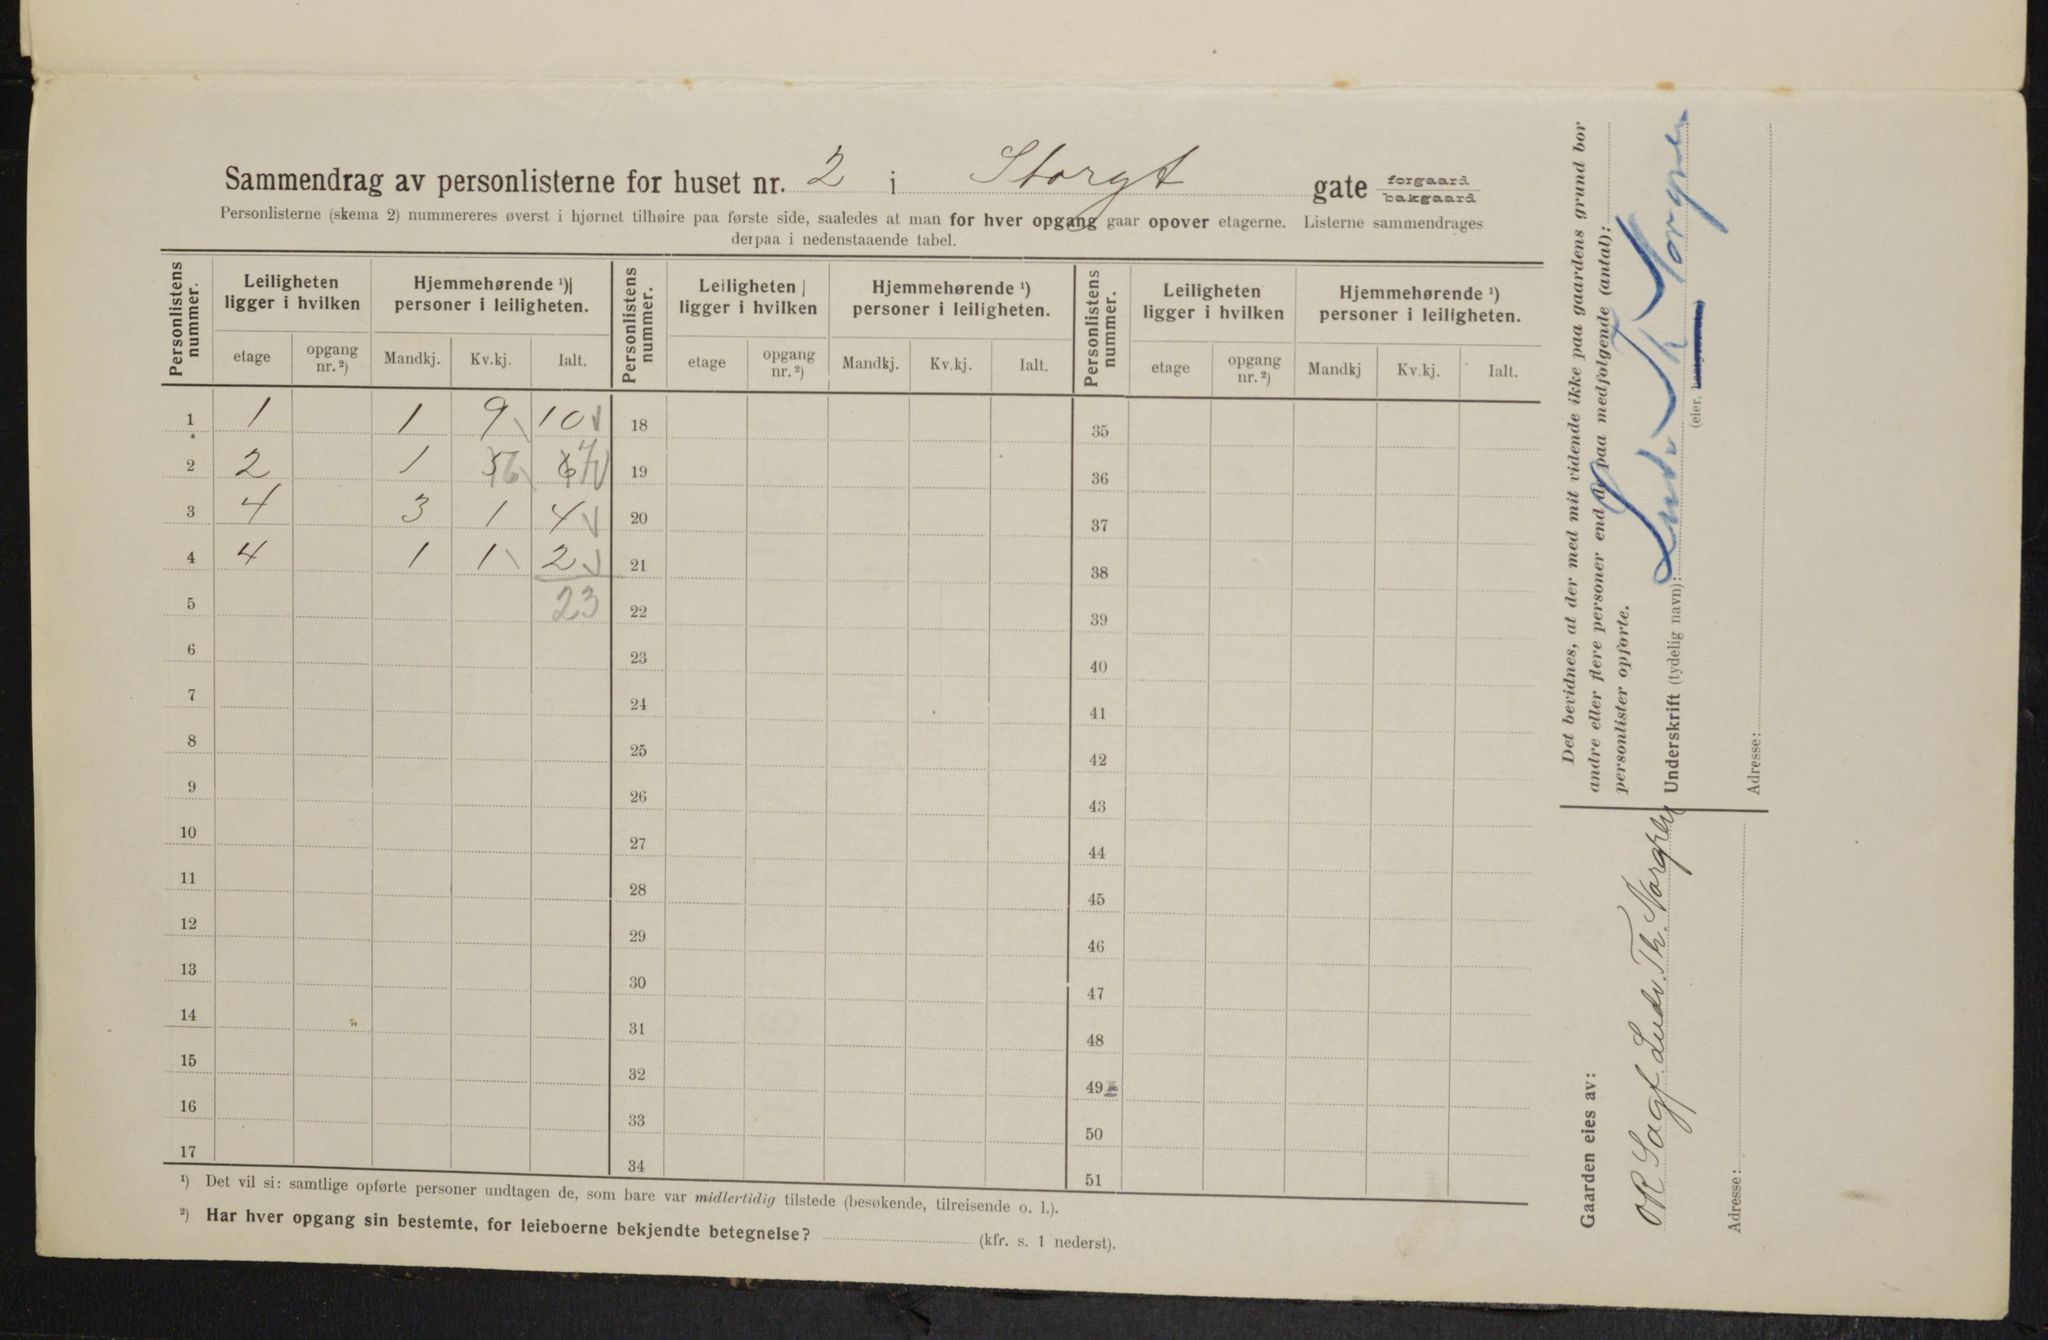 Sammendrag av personlisterne for huset nr. 2 i Storgt gate forgaard bakgaard
Personlisterne (skema 2) nummereres øverst i hjørnet tilhøire paa første side, saaledes at man for hver opgang gaar opover etagerne. Listerne sammendrages
derpaa i nedenstaaende tabel.
Personlistens nummer. Leiligheten ligger i hvilken Hjemmehørende ¹) personer i leiligheten. Personlistens nummer. Leiligheten ligger i hvilken Hjemmehørende ¹) personer i leiligheten. Personlistens nummer. Leiligheten ligger i hvilken Hjemmehørende ¹) personer i leiligheten.
etage opgang nr. ²) Mandkj. Kv.kj. Ialt. etage opgang nr. ²) Mandkj. Kv.kj. Ialt. etage opgang nr. ²) Mandkj Kv.kj. Ialt.
1 1 1 9 10 18 35
2 2 1 5 6 6 7 19 36
3 4 3 1 4 20 37
4 4 1 1 2 21 38
5 23 22 39
6 23 40
7 24 41
8 25 42
9 26 43
10 27 44
11 28 45
12 29 46
13 30 47
14 31 48
15 32 49
16 33 50
17 34 51
¹) Det vil si: samtlige opførte personer undtagen de, som bare var midlertidig tilstede (besøkende, tilreisende o. l.).
²) Har hver opgang sin bestemte, for leieboerne bekjendte betegnelse? (kfr. s. 1 nederst).
Det bevidnes, at der med mit vidende ikke paa gaardens grund bor
andre eller flere personer end de paa medfølgende (antal):
personlister opførte.
Underskrift (tydelig navn):
(eier,
Adresse:
Gaarden eies av:
OR Sagf. Ludv. Th.
Adresse: